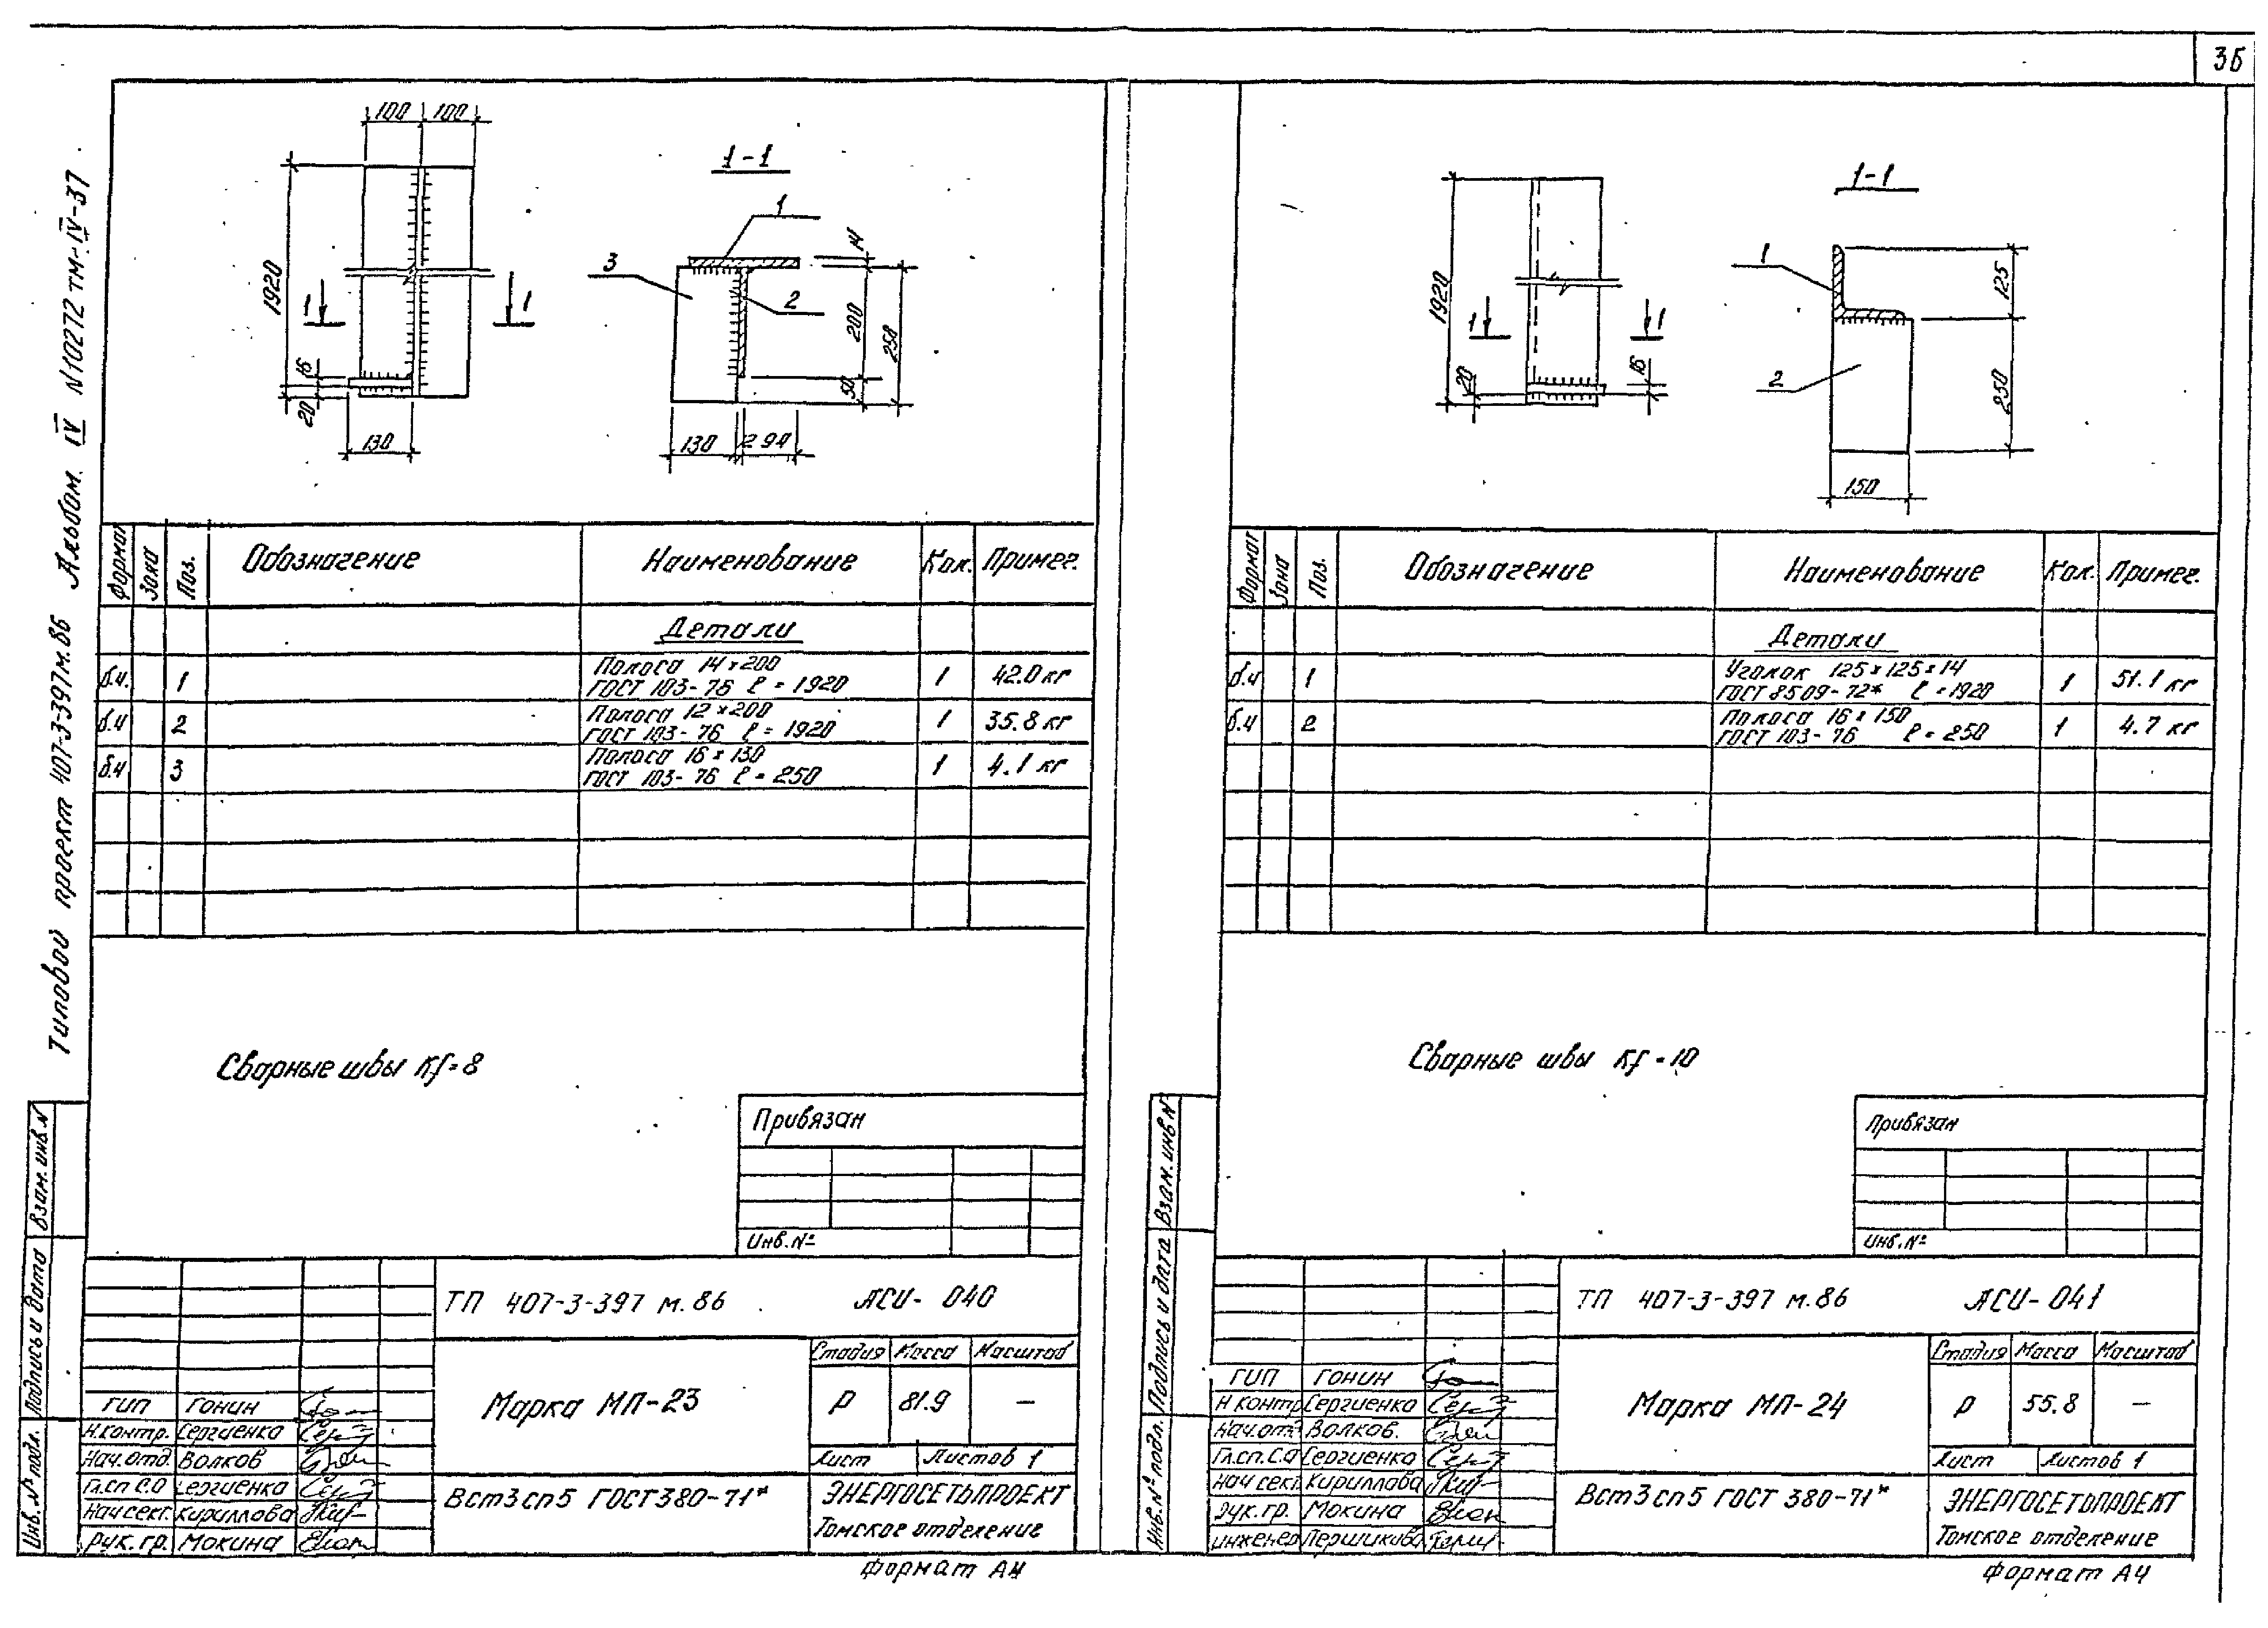 36
Типовой проект 407-3-397м.86 Альбом IV N10272 тм-IV-37
100 100
1920
1 1
16
20
130
1-1
1
3
2
14
200
250
50
130 2 94
Формат Зона Поз. Обозначение Наименование Кол. Примеч.
Детали
б.ч. 1 Полоса 14×200 ГОСТ 103-76 ℓ=1920 1 42.0 кг
б.ч 2 Полоса 12×200 ГОСТ 103-76 ℓ=1920 1 35.8 кг
б.ч 3 Полоса 16×130 ГОСТ 103-76 ℓ=250 1 4.1 кг
Сварные швы Kf=8
Привязан
Инв.№
ТП 407-3-397 м.86 АСИ-040
Марка МП-23
Стадия Масса Масштаб
Р 81.9 —
Лист Листов 1
ВСт3сп5 ГОСТ380-71*
ЭНЕРГОСЕТЬПРОЕКТ
Томское отделение
ГИП Гонин
Н.контр. Сергиенко
Нач.отд. Волков
Гл.сп С.О Сергиенко
Нач сект. Кириллова
Рук.гр. Мокина
Инв.№подл. Подпись и дата Взам.инв.N
Формат А4
1920
1 1
16
20
1-1
1
2
125
250
150
Формат Зона Поз. Обозначение Наименование Кол. Примеч.
Детали
б.ч 1 Уголок 125×125×14 ГОСТ 8509-72* ℓ=1920 1 51.1 кг
б.ч 2 Полоса 16×150 ГОСТ 103-76 ℓ=250 1 4.7 кг
Сварные швы Kf=10
Привязан
Инв.№
ТП 407-3-397 м.86 АСИ-041
Марка МП-24
Стадия Масса Масштаб
Р 55.8 —
Лист Листов 1
ВСт3сп5 ГОСТ 380-71*
ЭНЕРГОСЕТЬПРОЕКТ
Томское отделение
ГИП Гонин
Н контр Сергиенко
Нач.отд Волков.
Гл.сп.С.О Сергиенко
Нач сект. Кириллова
Рук.гр. Мокина
инженер Першикова
Инв.№подл. Подпись и дата Взам.инв N
Формат А4